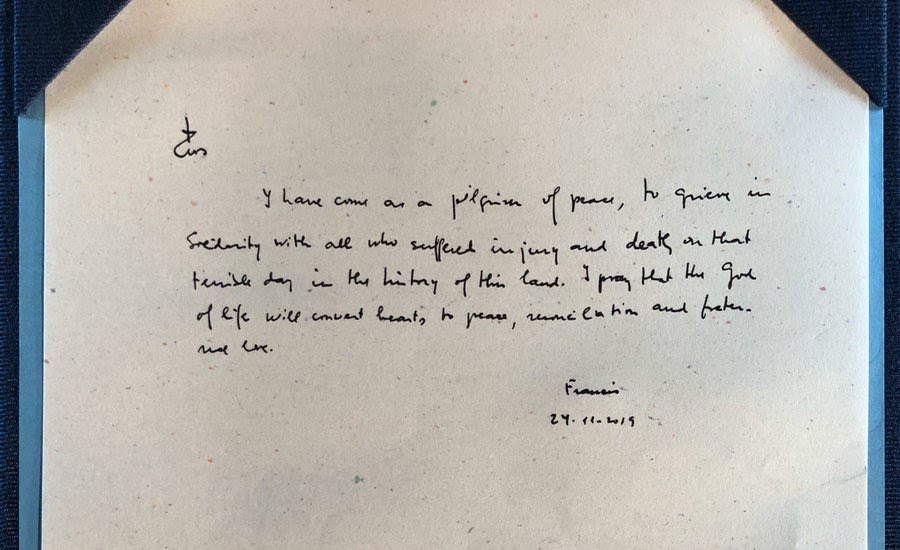 I have come as a pilgrim of peace, to grieve in
solidarity with all who suffered injury and death on that
terrible day in the history of this land. I pray that the God
of life will convert hearts to peace, reconciliation and frater-
nal love.
Francis
24.11.2019